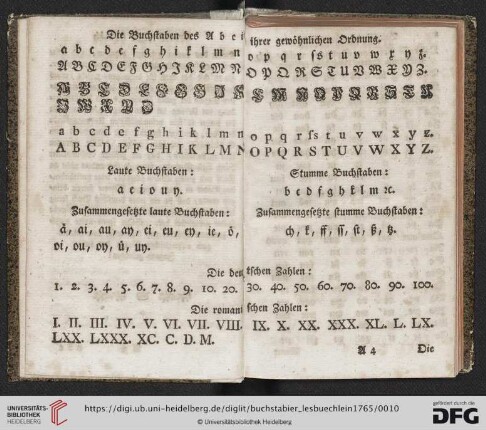 Die Buchstaben des Abei ihrer gewöhnlichen Ordnung.
a b c d e f g h i k l m n o p q r ſ s t u v w x y z.
A B C D E F G H J K L M N O P Q R S T U V W X Y Z.
a b c d e f g h i k l m n o p q r ſ s t u v w x y z.
A B C D E F G H I K L M N O P Q R S T U V W X Y Z.
Laute Buchstaben:
a e i o u y.
Zusammengesetzte laute Buchstaben:
ä, ai, au, ay, ei, eu, ey, ie, ö,
oi, ou, oy, ü, uy.
Stumme Buchstaben:
b c d f g h k l m ꝛc.
Zusammengesetzte stumme Buchstaben:
ch, k, ff, ſſ, ſt, ß, tz.
Die deutschen Zahlen:
1. 2. 3. 4. 5. 6. 7. 8. 9. 10. 20. 30. 40. 50. 60. 70. 80. 90. 100.
Die romanischen Zahlen:
I. II. III. IV. V. VI. VII. VIII. IX. X. XX. XXX. XL. L. LX.
LXX. LXXX. XC. C. D. M.
A 4 Die
UNIVERSITÄTS-
BIBLIOTHEK
HEIDELBERG
https://digi.ub.uni-heidelberg.de/diglit/buchstabier_lesbuechlein1765/0010
© Universitätsbibliothek Heidelberg
gefördert durch die
DFG